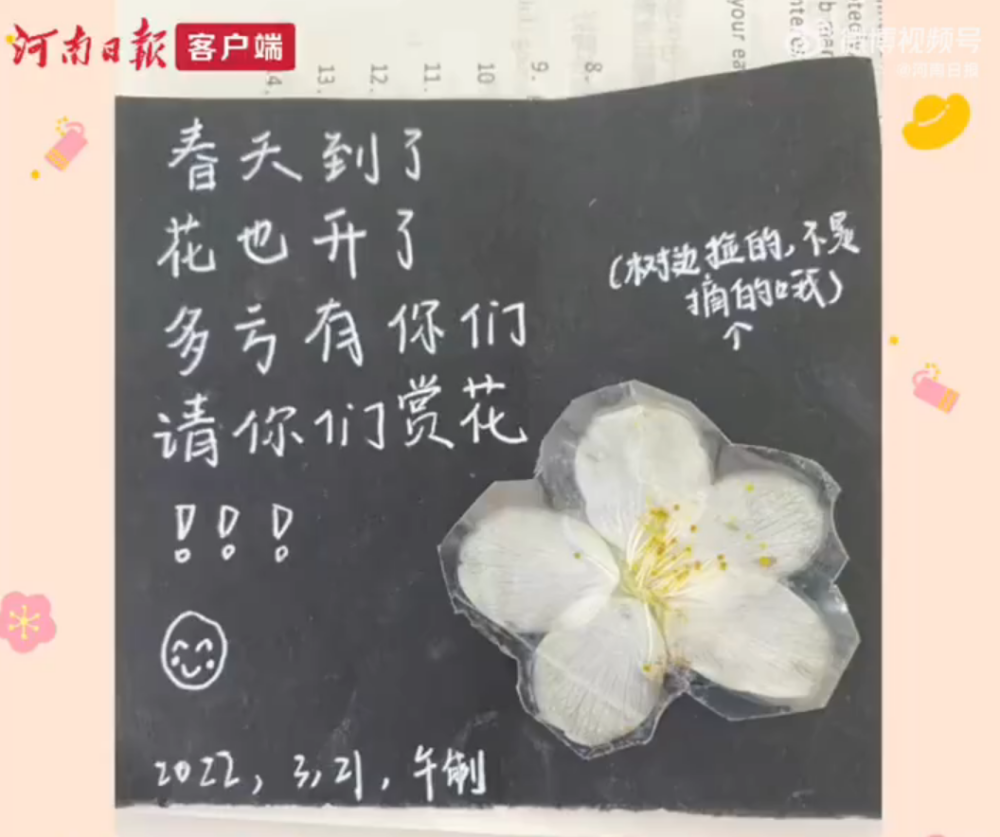 河南日报 客户端
微博视频号
@河南日报
14. 13. 12. 11. 10 9. 8.
your ea
春天到了
花也开了
多亏有你们
请你们赏花
!!!
(树边捡的,不是
摘的哦)
个
2022,3,21,午制